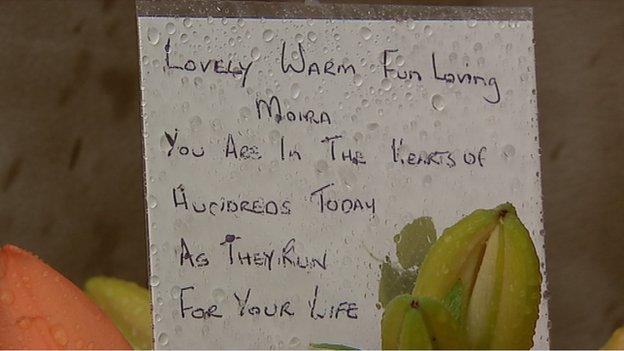 Lovely Warm Fun Loving
Moira
You Are In The Hearts of
Hundreds Today
As They Run
For Your Life